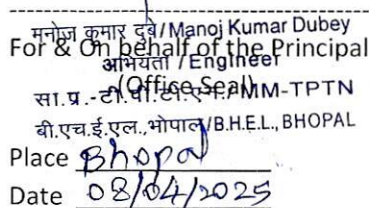 मनोज कुमार दुबे/Manoj Kumar Dubey
For & On behalf of the Principal
अभियंता /Engineer
(Office Seal)
सा.प्र.-टी.पी.टी.एन./MM-TPTN
बी.एच.ई.एल.,भोपाल/B.H.E.L., BHOPAL
Place Bhopal
Date 08/04/2025